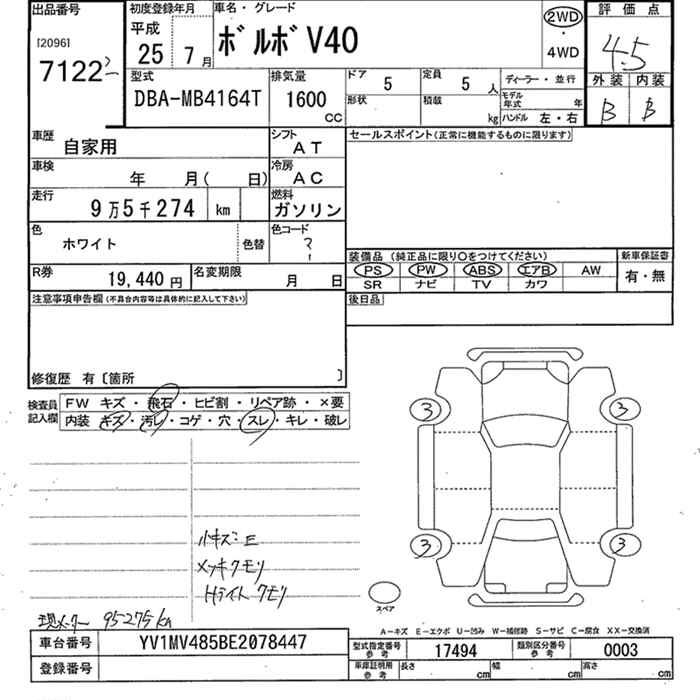 出品番号 初度登録年月 車名・グレード 2WD 評価点
[2096] 平成
71222 25 7月 ボルボV40 ・ 4WD 4.5
型式 排気量 ドア 5 定員 5 人 ディーラー・並行 外装 内装
DBA-MB4164T 1600 cc 形状 積載 kg モデル年式 年 ハンドル 左・右 B B
車歴 自家用 シフト AT セールスポイント(正常に機能するものに限ります)
車検 年 月( 日) 冷房 AC
走行 9万5千274 km 燃料 ガソリン
色 ホワイト 色替 色コード ?
装備品(純正品に限り〇をつけてください) 新車保証書
R券 19,440円 名変期限 月 日 PS PW ABS エアB AW 有・無
SR ナビ TV カワ
注意事項申告欄(不具合内容等は具体的に記入して下さい) 後日品
修復歴 有〔箇所 〕
検査員記入欄 FW キズ・飛石・ヒビ割・リペア跡・×要
内装 キズ・汚レ・コゲ・穴・スレ・キレ・破レ
3 3
小キズ:E
3 3
メッキクモリ
Hライト クモリ
スペア
現メーター 95275km
A-キズ E-エクボ U-凹み W-補修跡 S-サビ C-腐食 XX-交換済
車台番号 YV1MV485BE2078447 型式指定番号 参考 17494 類別区分番号 参考 0003
登録番号 車庫証明用 参考 長さ cm 幅 cm 高さ cm